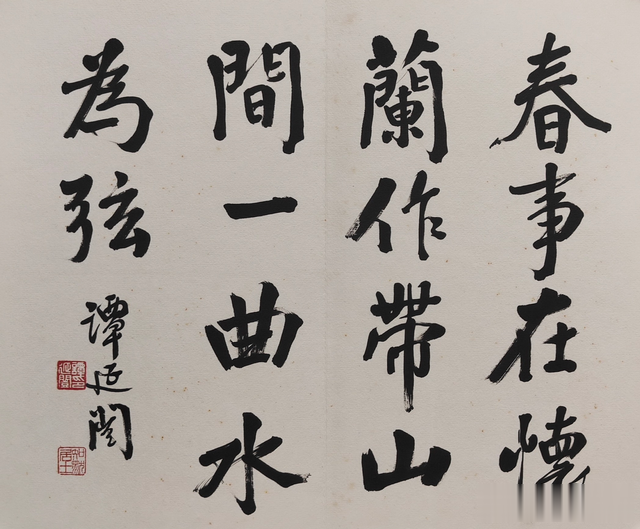 春事在懷
蘭作帶山
間一曲水
為弦
譚延闓